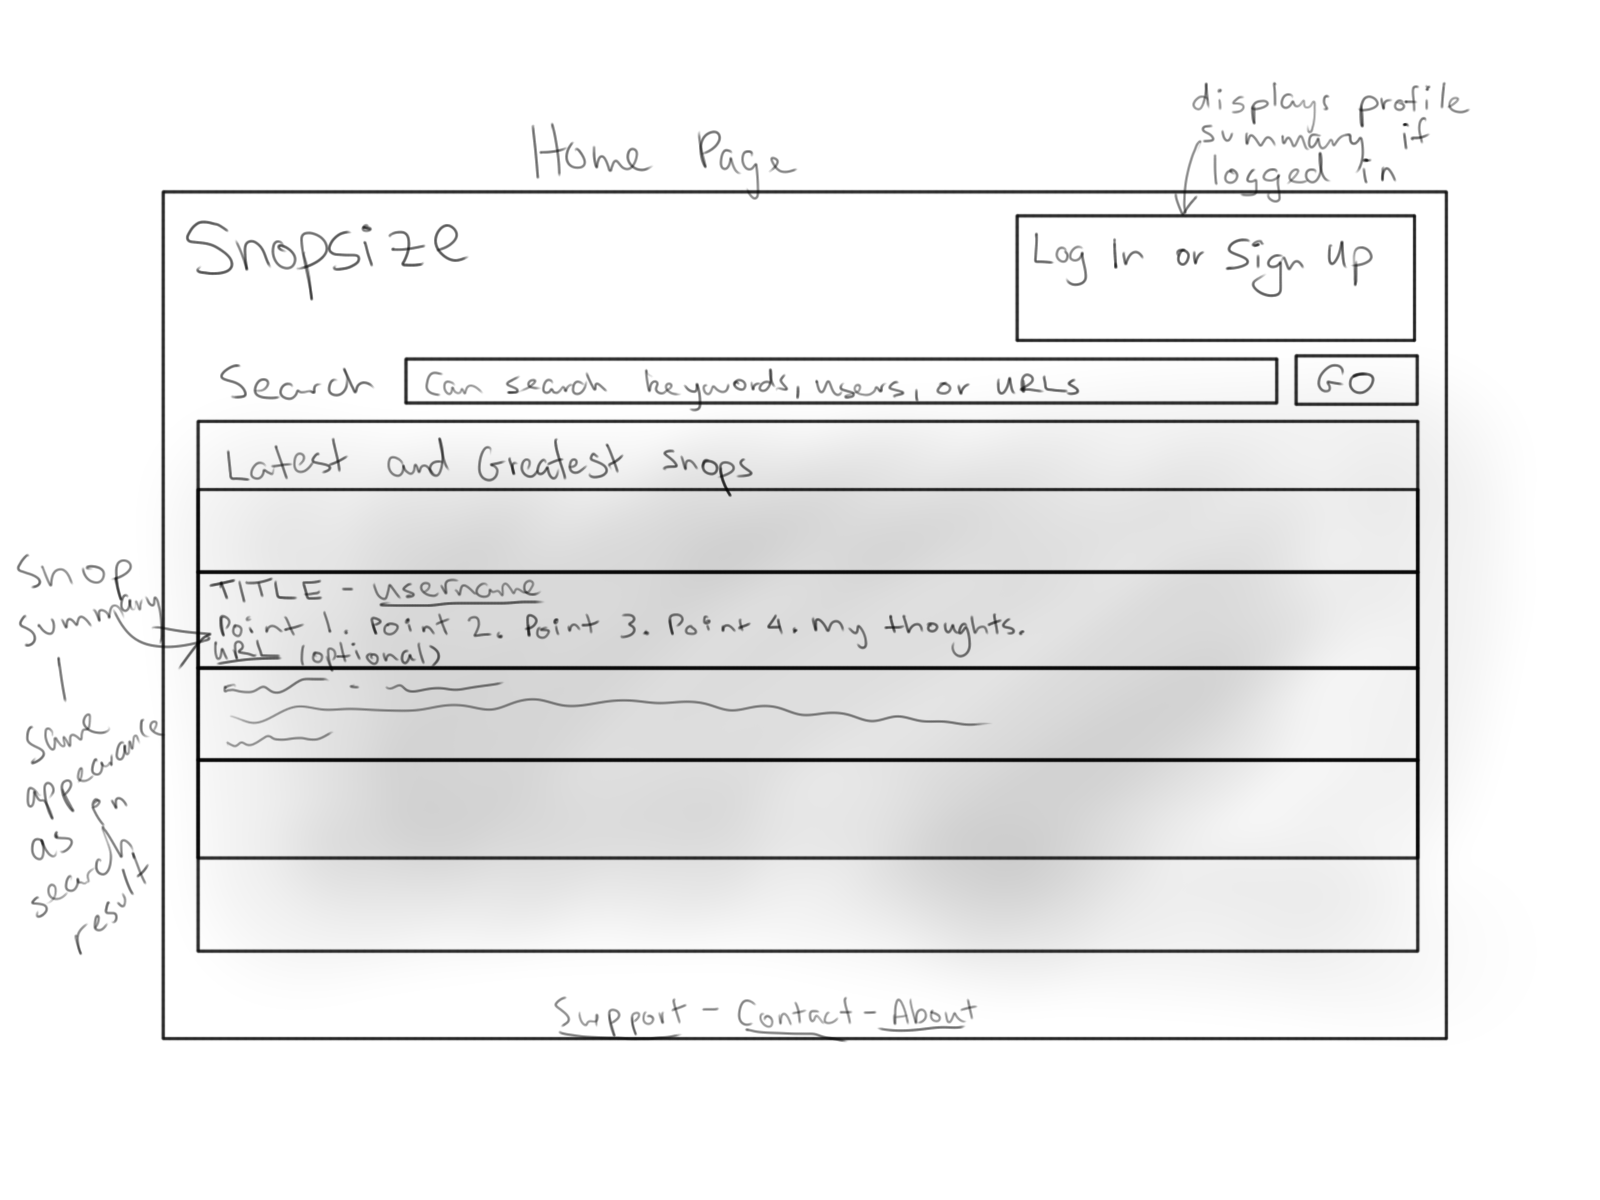 displays profile
summary if
logged in
Home Page
Snopsize
Log In or Sign Up
Search
Can search keywords, users, or URLs
GO
Latest and Greatest snops
Snop
summary
|
same
appearance
as on
search
result
TITLE - username
Point 1. Point 2. Point 3. Point 4. My thoughts.
URL (optional)
Support - Contact - About